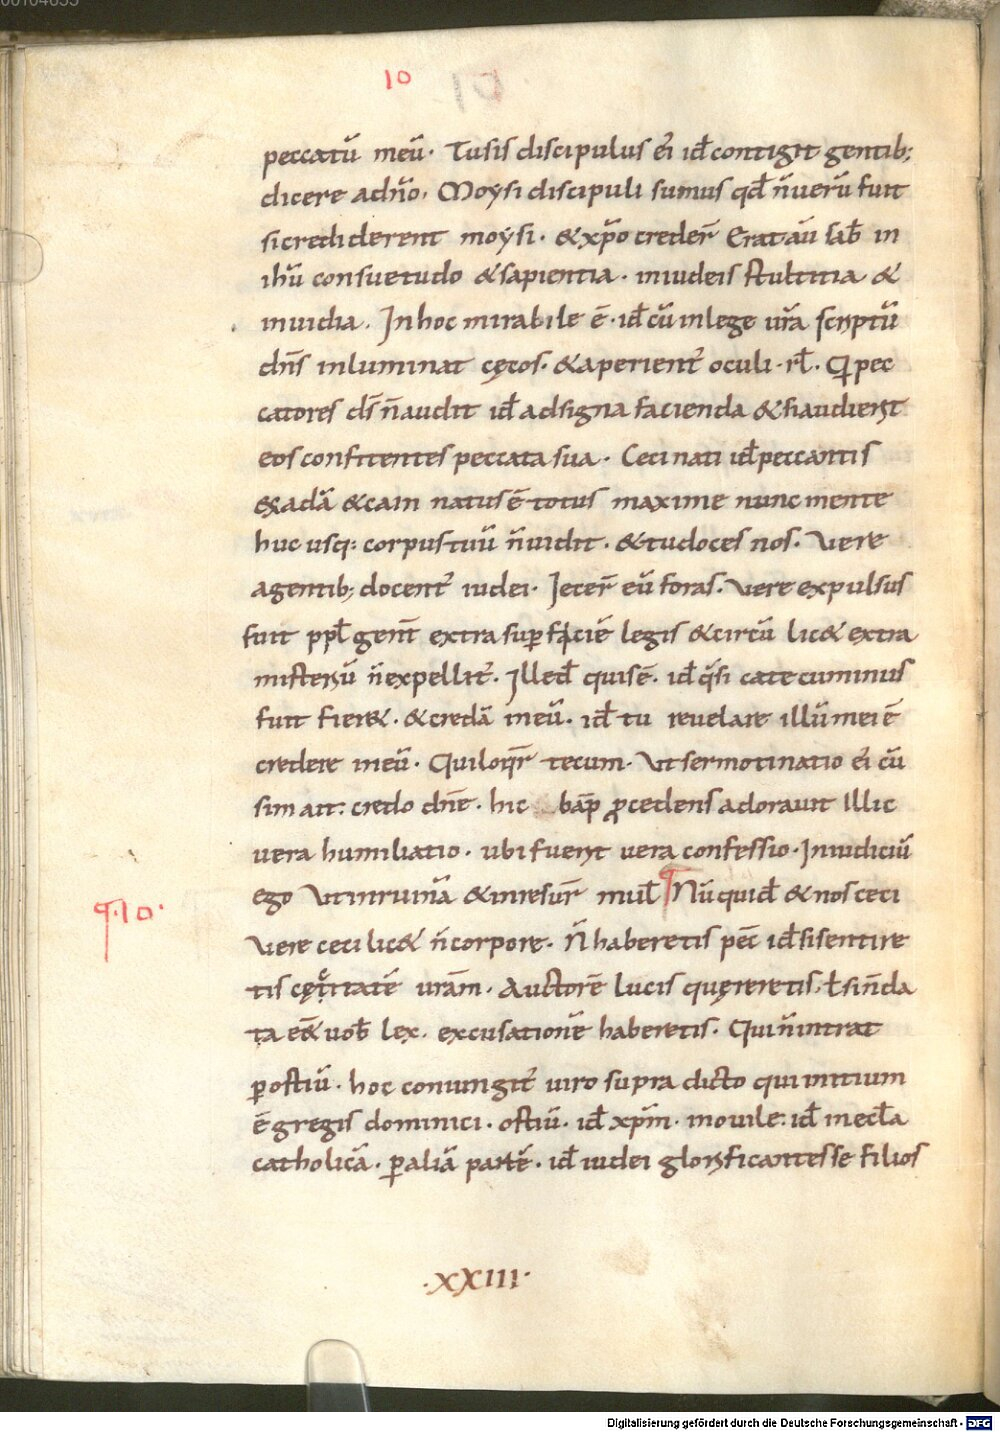 10
peccatū meū. Tu sis discipulus ei͛ id̄ contigit gentib;
dicere ad hꝛ̄o. Moysi discipuli sumus qd̄ n̄ uerū fuit
si crediderent moysi. & xp̄o creder̄ Erat aū sab̄ in
ihū consuetudo & sapientia. in iudeis stultitia &
inuidia. In hoc mirabile ē. id̄ cū in lege ur̄a scriptū
dn̄s inluminat cęcos. & aperient͛ oculi. rl̄. Qͥ pec
catores ds̄ n̄ audit id̄ ad signa facienda & si audierit
eos confitentes peccata sua. Ceci nati id̄ peccantis
& x adā & cain natus ē totus maxime nunc mente
huc usq: corpus tuū n̄ uidit. & tu doces nos. Vere
agentib; docent͛ iudei. Iecer̄ eū foras. Vere expulsus
fuit ppl̄ gent̄ extra superfaciē legis & circū lic& extra
misteriū n̄ expellit͛. Ille d̄ quis ē. id̄ q̄si catecuminus
fuit fier&. & credā in eū. id̄ tu reuelare illū mei ē
credere in eū. Qui loqr̄ tecum. Ut sermo tinatio ei͛ cū
sim ait: credo dn̄e. hic bap̄ procedens adorauit Illic
uera humiliatio. ubi fuerit uera confessio. In iudiciū
ego Ut in ruinā & in resur̄ mul̄ ¶ Nūquid & nos ceci
¶.10.
Vere ceci lic& n̄ corpore. N̄ haberetis pec̄ id̄ si sentire
tis cęcitatē uram̄. Auctorē lucis quęreretis. ł si n̄ da
ta e& uob̄ lex. excusationē haberetis. Qui n̄ intrat
ꝑ ostiū. hoc coniungit͛ uiro supra dicto qui initium
ē gregis dominici. ostiū. id̄ xpm̄. in ouile: id̄ in ecl̄a
catholicā. ꝑ aliā partē. id̄ iudei glorificantes se filios
.XXIII.
Digitalisierung gefördert durch die Deutsche Forschungsgemeinschaft - DFG